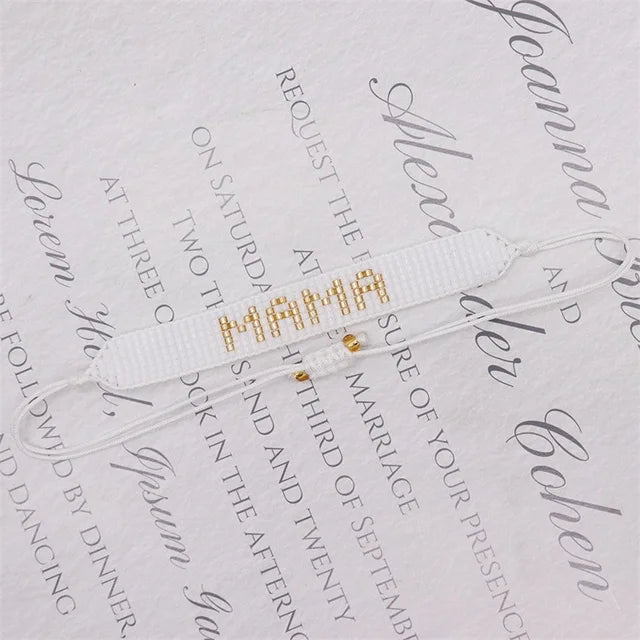 MAMA
Joanna
Alexa
Cohen
REQUEST THE
SURE OF YOUR PRESENCE
MARRIAGE
ON SATURDA
THIRD OF SEPTEMBE
AND TWENTY
AT THREE O
OCK IN THE AFTERNO
Lorem
Ipsum
FOLLOWED BY DINNER,
AND DANCING